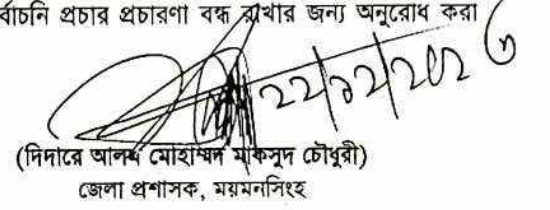 র্বাচনি প্রচার প্রচারণা বন্ধ রাখার জন্য অনুরোধ করা
২২/১২/২০১৩
(দিদারে আলম মোহাম্মদ মাকসুদ চৌধুরী)
জেলা প্রশাসক, ময়মনসিংহ